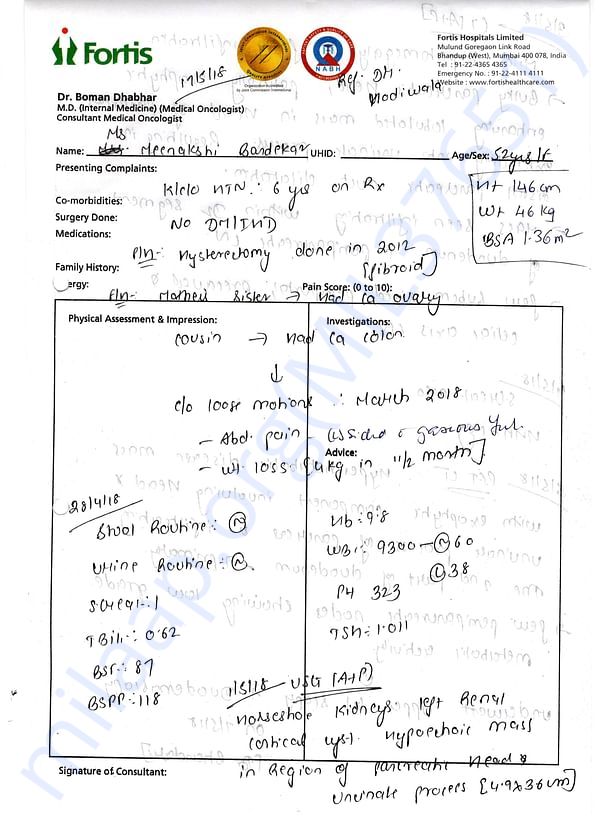 Fortis
Fortis Hospitals Limited
Mulund Goregaon Link Road
Bhandup (West), Mumbai 400 078, India
Tel : 91-22-4365 4365
Emergency No. : 91-22-4111 4111
Website : www.fortishealthcare.com
NABH
17/5/18
Ref: Dr.
Modiwala
Dr. Boman Dhabhar
M.D. (Internal Medicine) (Medical Oncologist)
Consultant Medical Oncologist
Ms
Name: Meenakshi Bandekar UHID: Age/Sex: 52yrs/F
Presenting Complaints:
K/c/o HTN : 6 yrs on Rx
Ht 146 cm
Wt 46 kg
BSA 1.36m²
Co-morbidities:
Surgery Done: No DM/IHD
Medications:
P/H: Hysterectomy done in 2012
[fibroid]
Family History:
ergy: Pain Score: (0 to 10):
F/H: Mother's sister → had Ca ovary
Physical Assessment & Impression: Investigations:
cousin → had Ca colon
↓
c/o loose motions : March 2018
- Abd. pain - gaseous
Advice:
- Wt. loss [4kg in 1½ month]
28/4/18
Stool Routine : (N) Hb : 9.8
Urine Routine : (N) WBC : 9300 - (N) 60
(L) 38
S. Creat : 1 Plt 323
T Bili : 0.62 TSH : 1.011
BSF : 87
BSPP : 118
1/5/18 - USG (A+P)
Horseshoe kidneys left Renal
cortical cyst. Hypoechoic mass
Signature of Consultant: in region of pancreatic head &
uncinate process [4.9x36cm]
milaap.org